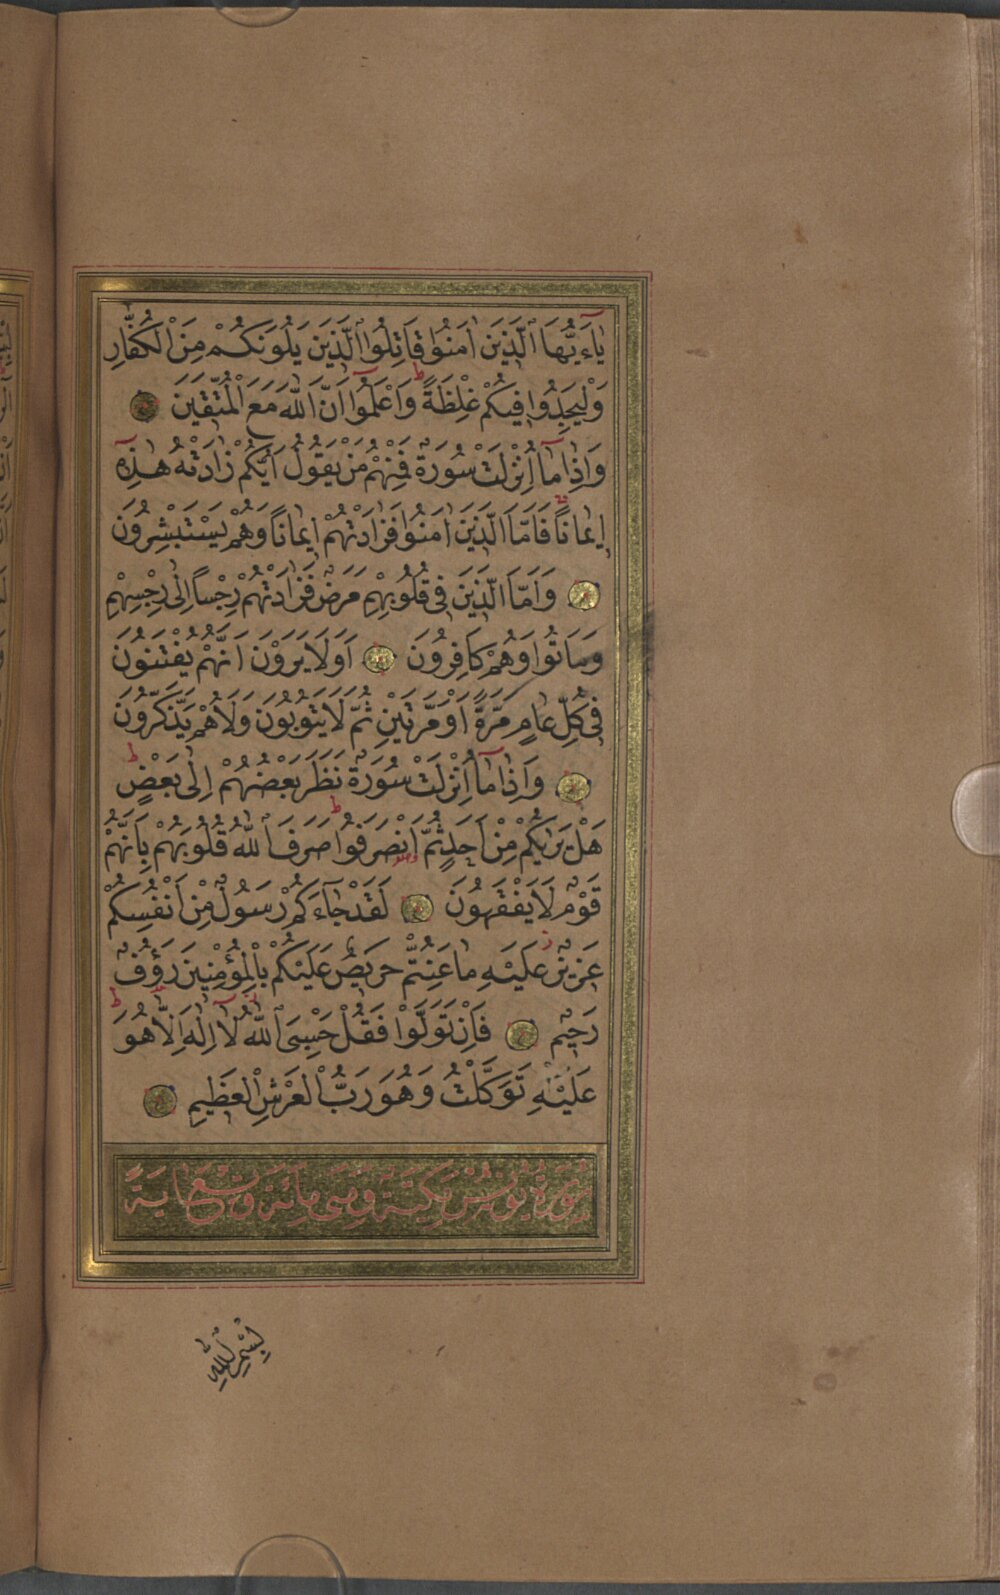 يَٓاءَيُّهَا الَّذ۪ينَ اٰمَنُوا قَاتِلُوا الَّذ۪ينَ يَلُونَكُمْ مِنَ الْكُفَّارِ
وَلْيَجِدُوا ف۪يكُمْ غِلْظَةً وَاعْلَمُٓوا اَنَّ اللّٰهَ مَعَ الْمُتَّق۪ينَ
وَاِذَا مَٓا اُنْزِلَتْ سُورَةٌ فَمِنْهُمْ مَنْ يَقُولُ اَيُّكُمْ زَادَتْهُ هٰذِه۪ٓ
ا۪يمَانًا فَاَمَّا الَّذ۪ينَ اٰمَنُوا فَزَادَتْهُمْ ا۪يمَانًا وَهُمْ يَسْتَبْشِرُونَ
وَاَمَّا الَّذ۪ينَ ف۪ي قُلُوبِهِمْ مَرَضٌ فَزَادَتْهُمْ رِجْسًا اِلٰى رِجْسِهِمْ
وَمَاتُوا وَهُمْ كَافِرُونَ اَوَلَا يَرَوْنَ اَنَّهُمْ يُفْتَنُونَ
ف۪ي كُلِّ عَامٍ مَرَّةً اَوْ مَرَّتَيْنِ ثُمَّ لَا يَتُوبُونَ وَلَا هُمْ يَذَّكَّرُونَ
وَاِذَا مَٓا اُنْزِلَتْ سُورَةٌ نَظَرَ بَعْضُهُمْ اِلٰى بَعْضٍ
هَلْ يَرٰيكُمْ مِنْ اَحَدٍ ثُمَّ انْصَرَفُوا صَرَفَ اللّٰهُ قُلُوبَهُمْ بِاَنَّهُمْ
قَوْمٌ لَا يَفْقَهُونَ لَقَدْ جَٓاءَكُمْ رَسُولٌ مِنْ اَنْفُسِكُمْ
عَز۪يزٌ عَلَيْهِ مَا عَنِتُّمْ حَر۪يصٌ عَلَيْكُمْ بِالْمُؤْمِن۪ينَ رَؤُفٌ
رَح۪يمٌ فَاِنْ تَوَلَّوْا فَقُلْ حَسْبِيَ اللّٰهُ لَٓا اِلٰهَ اِلَّا هُوَ
عَلَيْهِ تَوَكَّلْتُ وَهُوَ رَبُّ الْعَرْشِ الْعَظ۪يمِ
سُورَةُ يُونُسَ مَكِّيَّةٌ وَهِيَ مِائَةٌ وَتِسْعُ اٰيَةً
بِسْمِ اللّٰهِ